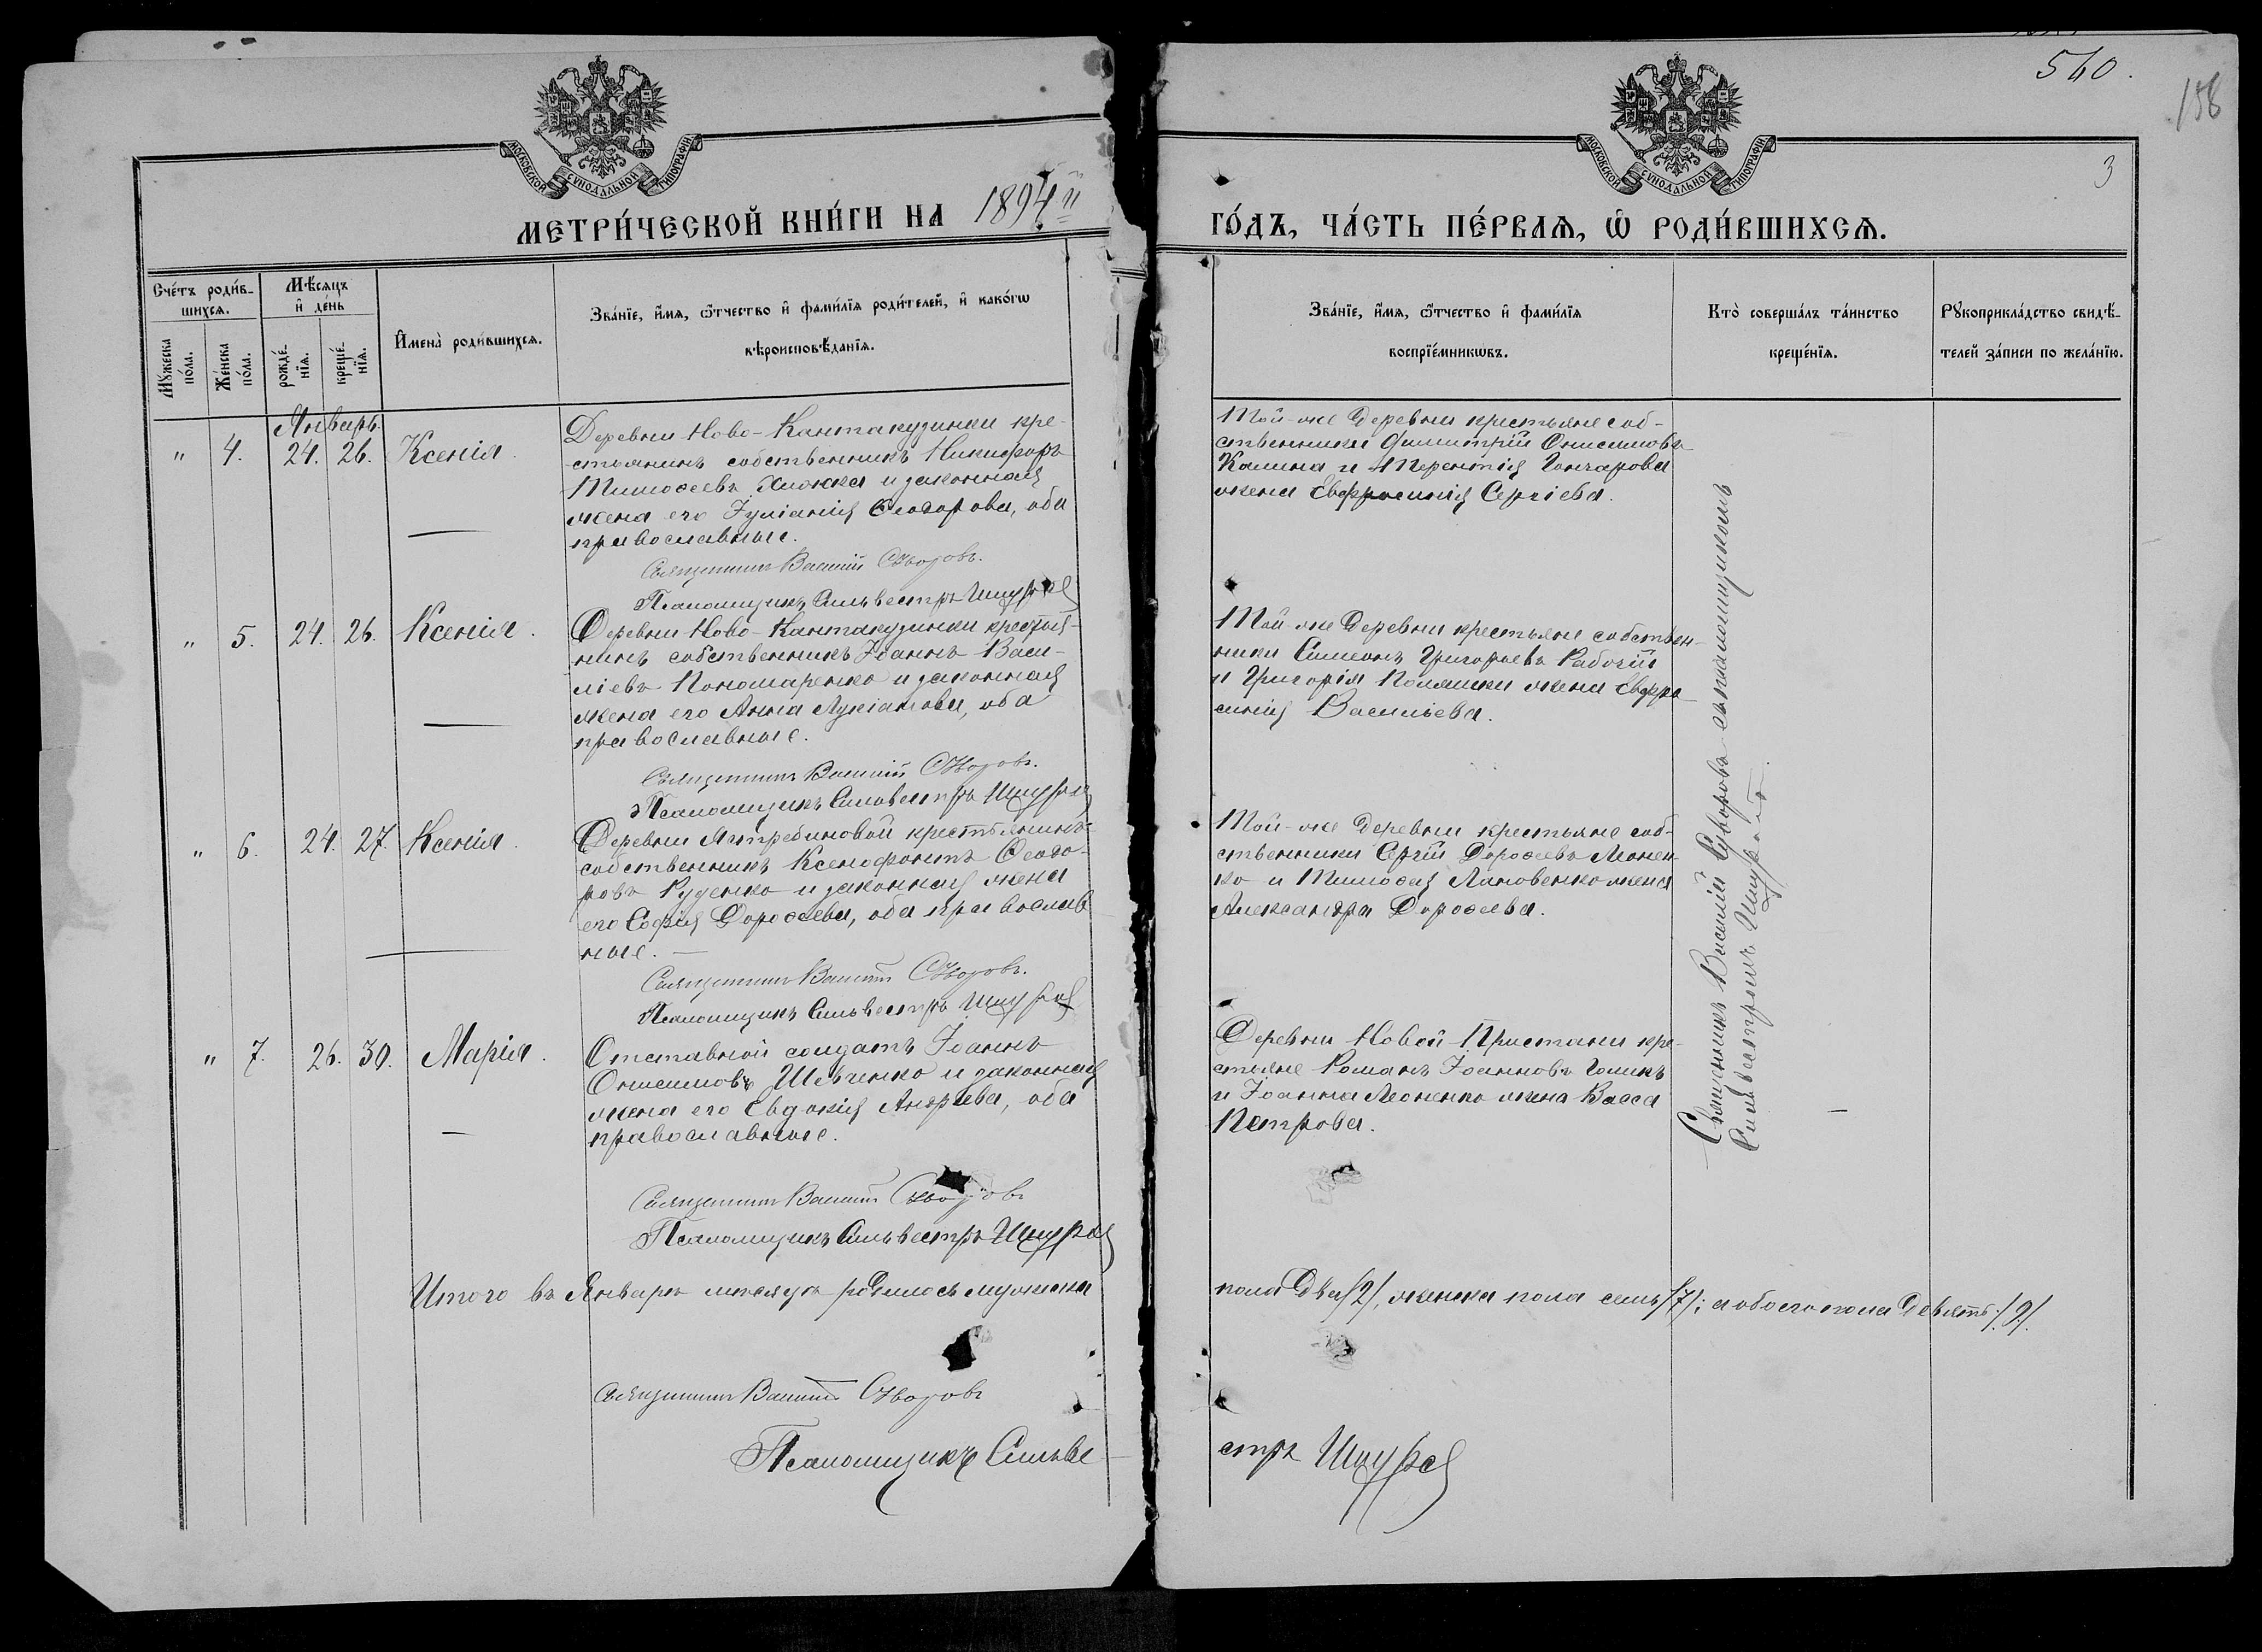 560.
158
3
МОСКОВСКОЙ СУНОДАЛЬНОЙ ТИПОГРАФІИ
МОСКОВСКОЙ СУНОДАЛЬНОЙ ТИПОГРАФІИ
МЕТРИ́ЧЕСКОЙ КНИ́ГИ НА 1894й
ГО́ДЪ, ЧА́СТЬ ПЕ́РВАѦ, Ѡ҆ РОДИ́ВШИХСѦ.
Сче́тъ роди́в-
шихсѧ.
Мѣ́сѧцъ
и҆ де́нь
Мꙋ́жеска
по́ла.
Же́нска
по́ла.
рожде́-
нїѧ.
креще́-
нїѧ.
И҆мена̀ роди́вшихсѧ.
Зва́нїе, и҆́мѧ, ѻ҆́тчество и҆ фами́лїѧ роди́телей, и҆ како́гѡ
вѣроисповѣ́данїѧ.
Зва́нїе, и҆́мѧ, ѻ҆́тчество и҆ фами́лїѧ
воспрїе́мникѡвъ.
Кто̀ соверша́лъ та́инство
креще́нїѧ.
Рꙋкоприкла́дство свидѣ́-
телей за́писи по жела́нїю.
Январь.
" 4. 24. 26. Ксенія.
Деревни Ново-Кантакузинки кре-
стьянинъ собственникъ Никифоръ
Тимоѳеевъ и законная
жена его Іуліанія Ѳеодорова, оба
православные.
Священникъ Василій Суворовъ.
Псаломщикъ Сильвестръ
Той-же деревни крестьяне соб-
ственники Димитрій Онисимовъ
Калина и Терентія Гончарова
жена Евфросинія Сергіева.
" 5. 24. 26. Ксенія.
Деревни Ново-Кантакузинки крестья-
нинъ собственникъ Іоаннъ Васи-
ліевъ Пономаренко и законная
жена его Анна Лукіанова, оба
православные.
Священникъ Василій Суворовъ.
Псаломщикъ Сильвестръ
Той-же деревни крестьяне собствен-
ники Симеонъ Григорьевъ Рабочій
и Григорія жена Евфро-
синія Васильева.
" 6. 24. 27. Ксенія.
Деревни Ястребиновой крестьянинъ
собственникъ Ксенофонтъ Ѳеодо-
ровъ Руденко и законная жена
его Софія Дороѳеева, оба православ
ные. —
Священникъ Василій Суворовъ.
Псаломщикъ Сильвестръ
Той-же деревни крестьяне соб-
ственники Сергій Дороѳеевъ Леонен-
ко и Тимоѳея Лановенко жена
Александра Дороѳеева.
" 7. 26. 30. Марія.
Отставной солдатъ Іоаннъ
Онисимовъ Шевченко и законная
жена его Евдокія Андреева, оба
православные.
Священникъ Василій Суворовъ
Псаломщикъ Сильвестръ
Деревни Новой-Пристани кре-
стьяне Романъ Іоанновъ Голикъ
и Іоанна Леоненко жена Васса
Петрова.
Священникъ Василій Суворовъ съ псаломщикомъ
Сильвестромъ
Итого въ Январѣ мѣсяцѣ родилось мужеска
пола два /2/, женска пола семь /7/; а обоего пола девять /9/.
Священникъ Василій Суворовъ
Псаломщикъ Сильве-
стръ